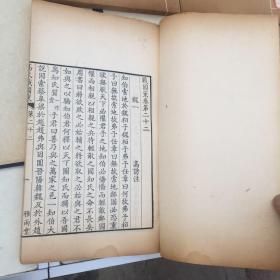 戰國策卷第二十二
魏一 高誘注
知伯索地於魏桓子魏桓子弗予任章曰何故弗予桓
子曰無故索地故弗予任章曰無故索地鄰國必恐重
欲無厭天下必懼君予之地知伯必憍憍而輕敵鄰國
懼而相親以相親之兵待輕敵之國知氏之命不長矣
周書曰將欲敗之必姑輔之將欲取之必姑與之君不
如與之以驕知伯君何釋以天下圖知氏而獨以吾國
為知氏質乎君曰善乃與之萬家之邑一知伯大
說因索蔡皋梁於趙趙弗與因圍晉陽韓魏反於外趙
雅雨堂